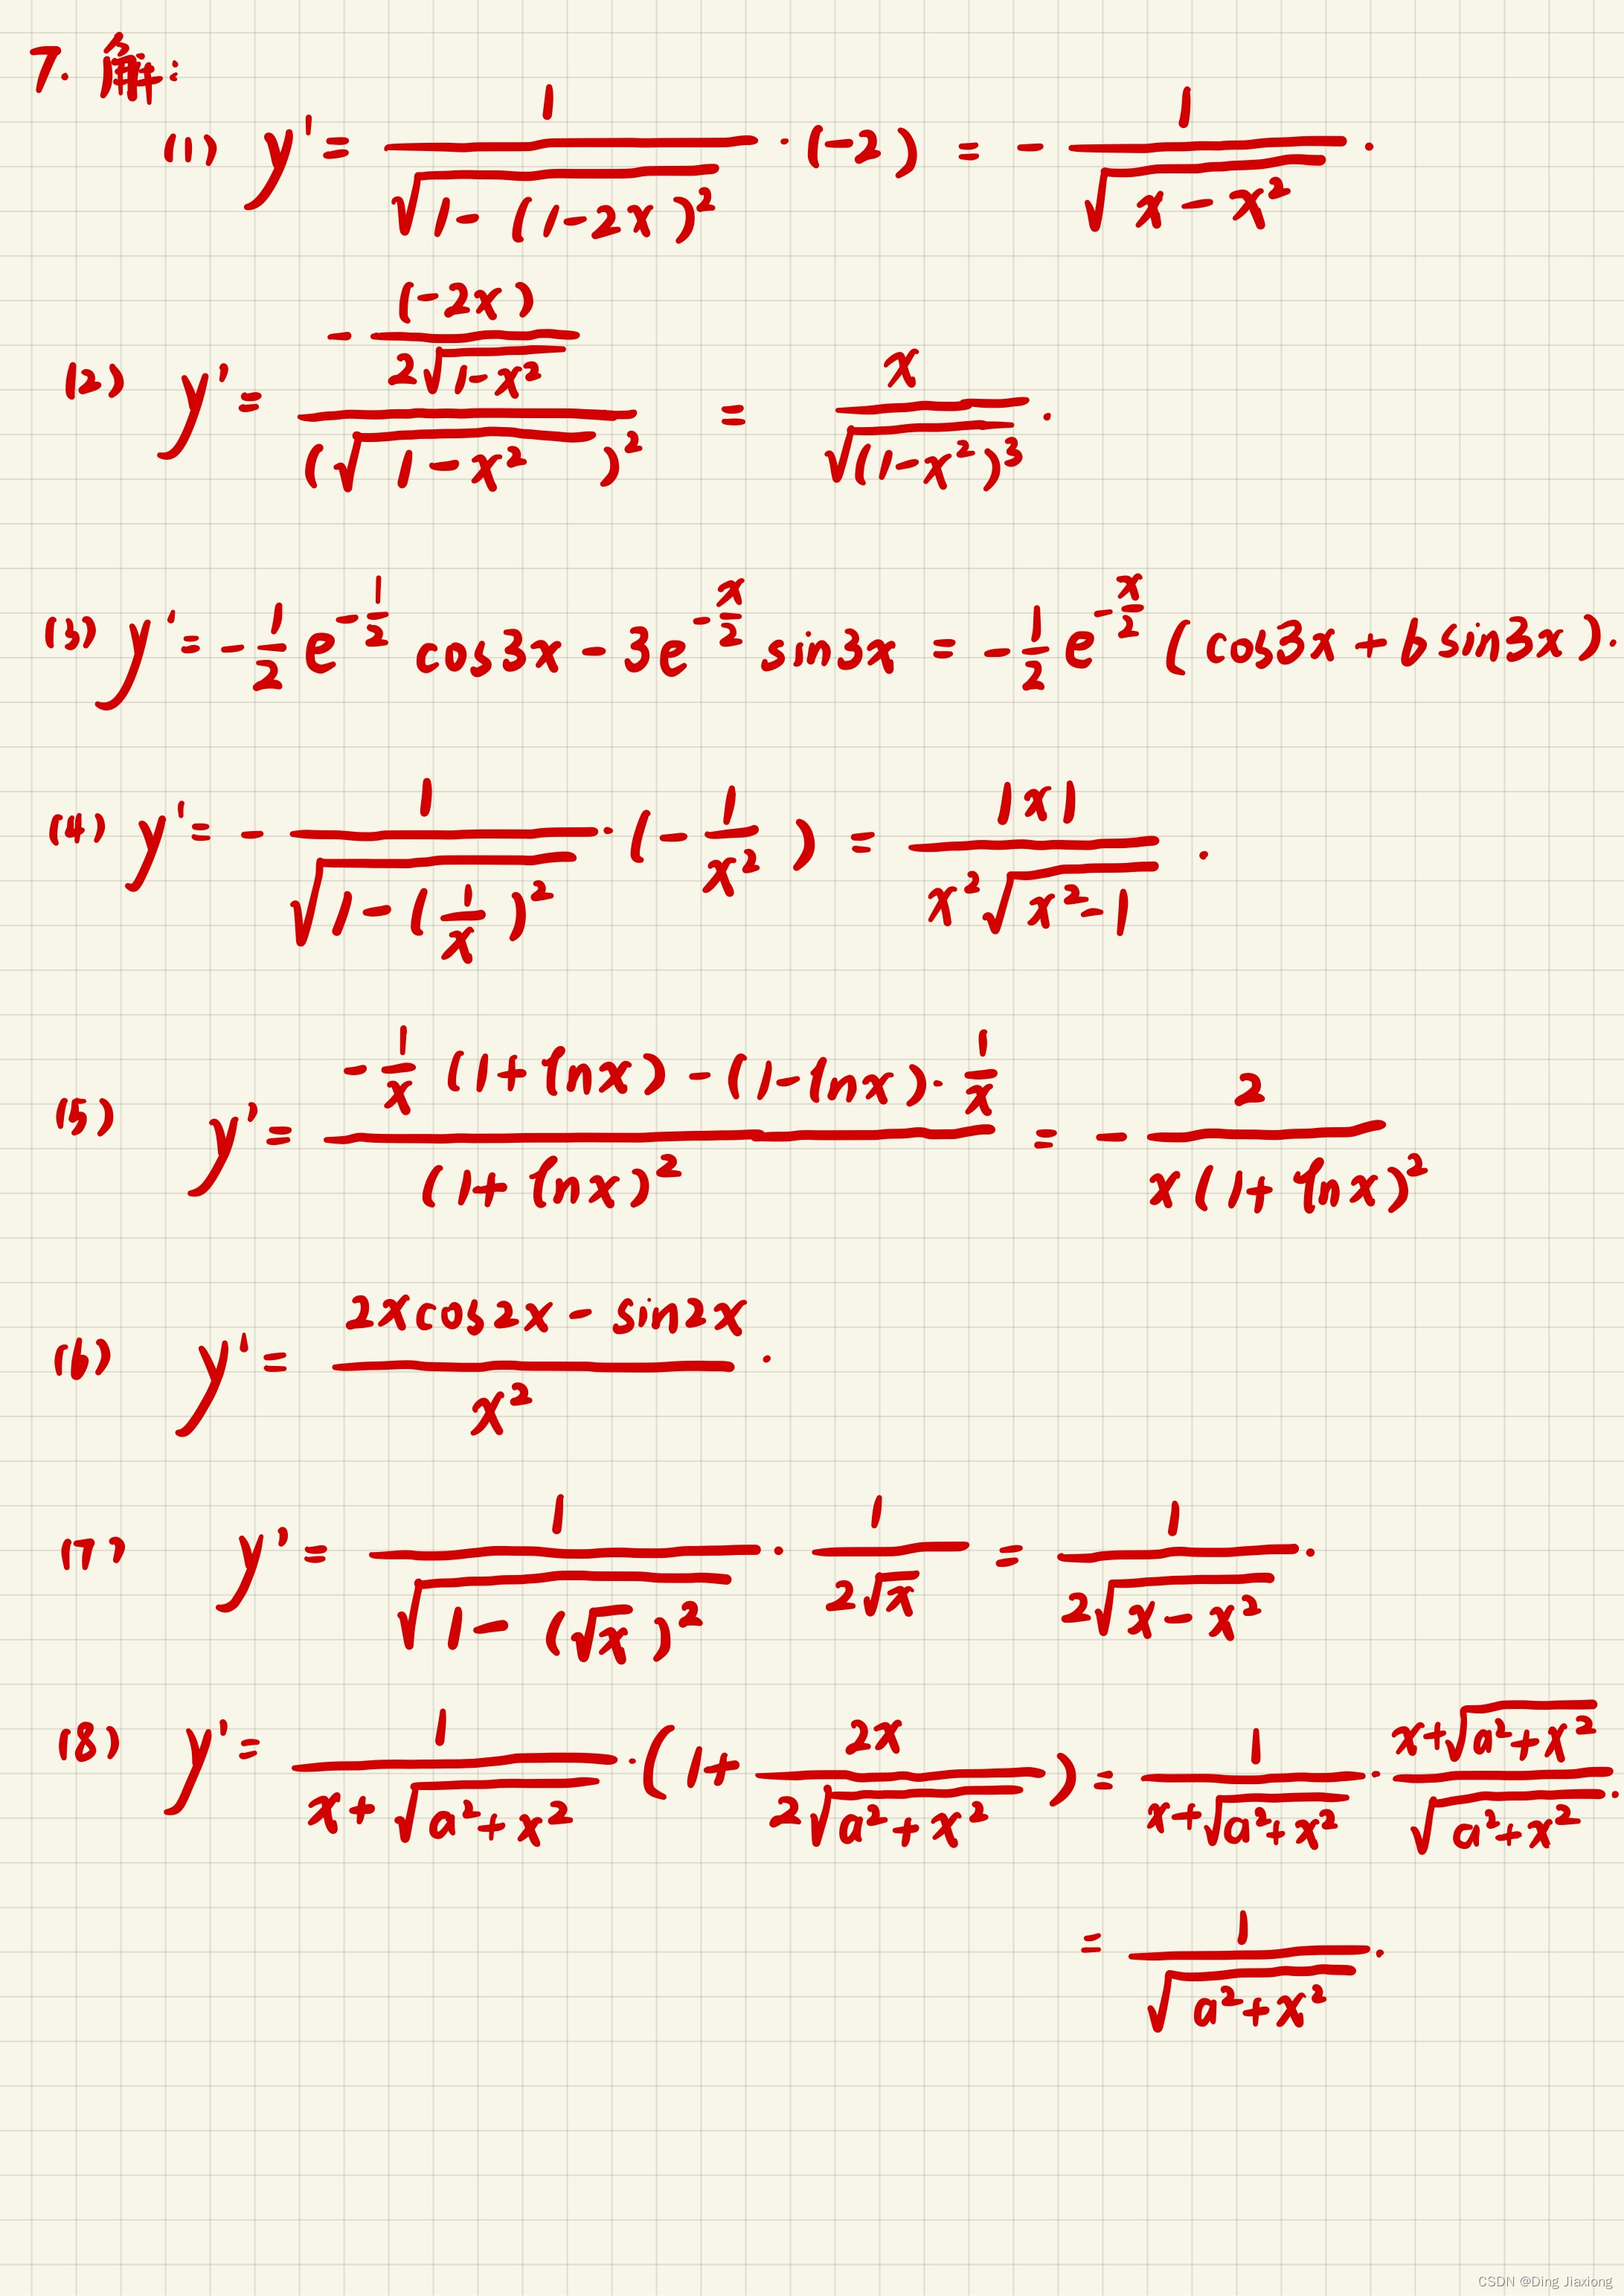 7. 解:
(1) y' = 1/√(1-(1-2x)²) · (-2) = - 1/√(x-x²) .
(2) y' = (- (-2x)/(2√(1-x²)))/(√(1-x²))² = x/√((1-x²)³) .
(3) y' = -1/2 e^(-1/2) cos3x - 3e^(-x/2) sin3x = -1/2 e^(-x/2) (cos3x + 6 sin3x).
(4) y' = - 1/√(1-(1/x)²) · (-1/x²) = |x|/(x²√(x²-1)) .
(5) y' = (-1/x (1+lnx) - (1-lnx)·1/x)/(1+lnx)² = - 2/(x(1+lnx)²)
(6) y' = (2xcos2x - sin2x)/x² .
(7) y' = 1/√(1-(√x)²) · 1/(2√x) = 1/(2√(x-x²)) .
(8) y' = 1/(x+√(a²+x²)) · (1+ 2x/(2√(a²+x²))) = 1/(x+√(a²+x²)) · (x+√(a²+x²))/√(a²+x²) .
= 1/√(a²+x²) .
CSDN @Ding Jiaxiong